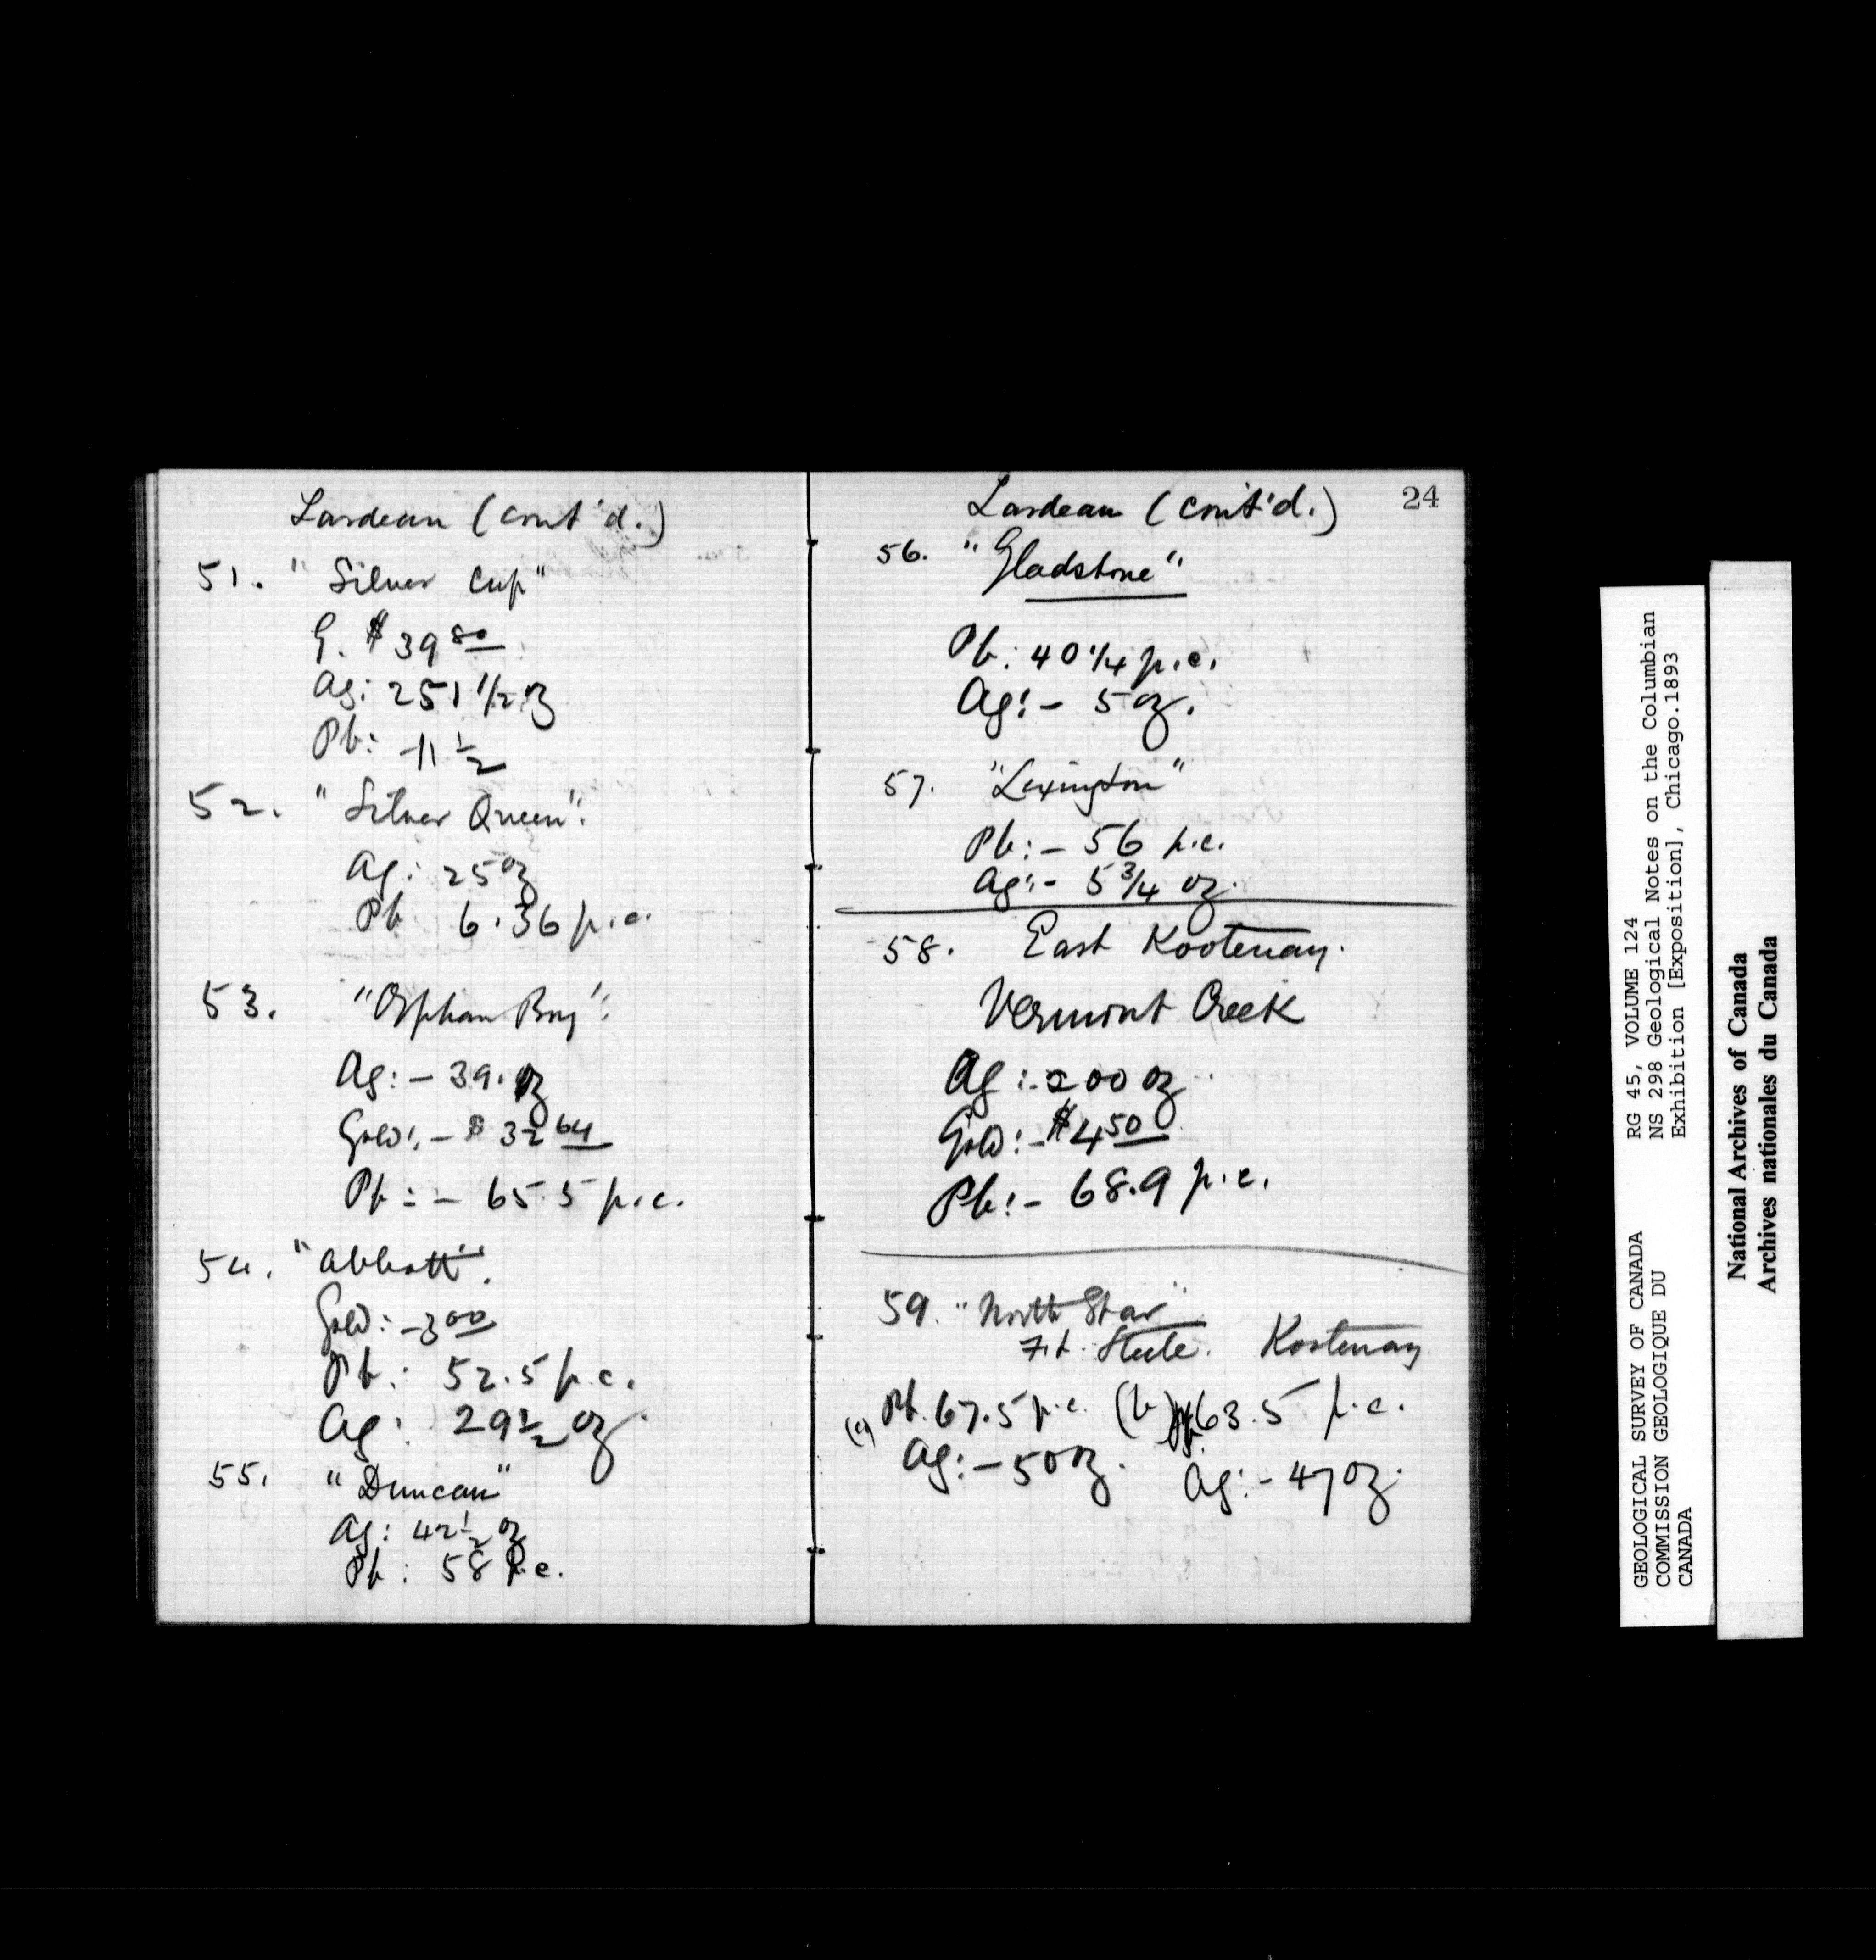 Lardeau (cont'd.)
51. "Silver Cup"
G. $39 80
Ag: 251 1/2 oz
Pb: -11 1/2
52. "Silver Queen":
Ag: 25 oz
Pb 6.36 p.c.
53. "Orphan Boy":
Ag: - 39. oz
Gold: - $32 64
Pb: - 65.5 p.c.
54. "Abbott".
Gold: - 3 00
Pb: 52.5 p.c.
Ag: 29 1/2 oz.
55. "Duncan"
Ag: 42 1/2 oz
Pb: 58 p.c.
Lardeau (cont'd.) 24
56. "Gladstone"
Pb: 40 1/4 p.c.
Ag: - 5 oz.
57. "Lexington"
Pb: - 56 p.c.
Ag: - 5 3/4 oz.
58. East Kootenay.
Vermont Creek
Ag: - 200 oz.
Gold: - $4 50
Pb: - 68.9 p.c.
59. "North Star"
Ft. Steele. Kootenay
(a) Pb. 67.5 p.c. (b) Pb 63.5 p.c.
Ag: - 50 oz. Ag: - 47 oz.
GEOLOGICAL SURVEY OF CANADA RG 45, VOLUME 124
COMMISSION GEOLOGIQUE DU NS 298 Geological Notes on the Columbian
CANADA Exhibition [Exposition], Chicago.1893
National Archives of Canada
Archives nationales du Canada